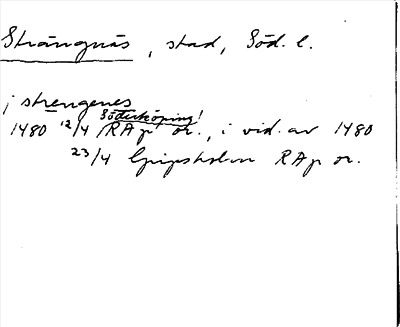 Strängnäs, stad, Söd. l.
j strengenes
Söderköping!
1480 12/4 RAp or., i vid. av 1480
23/4 Gripsholm RAp or.